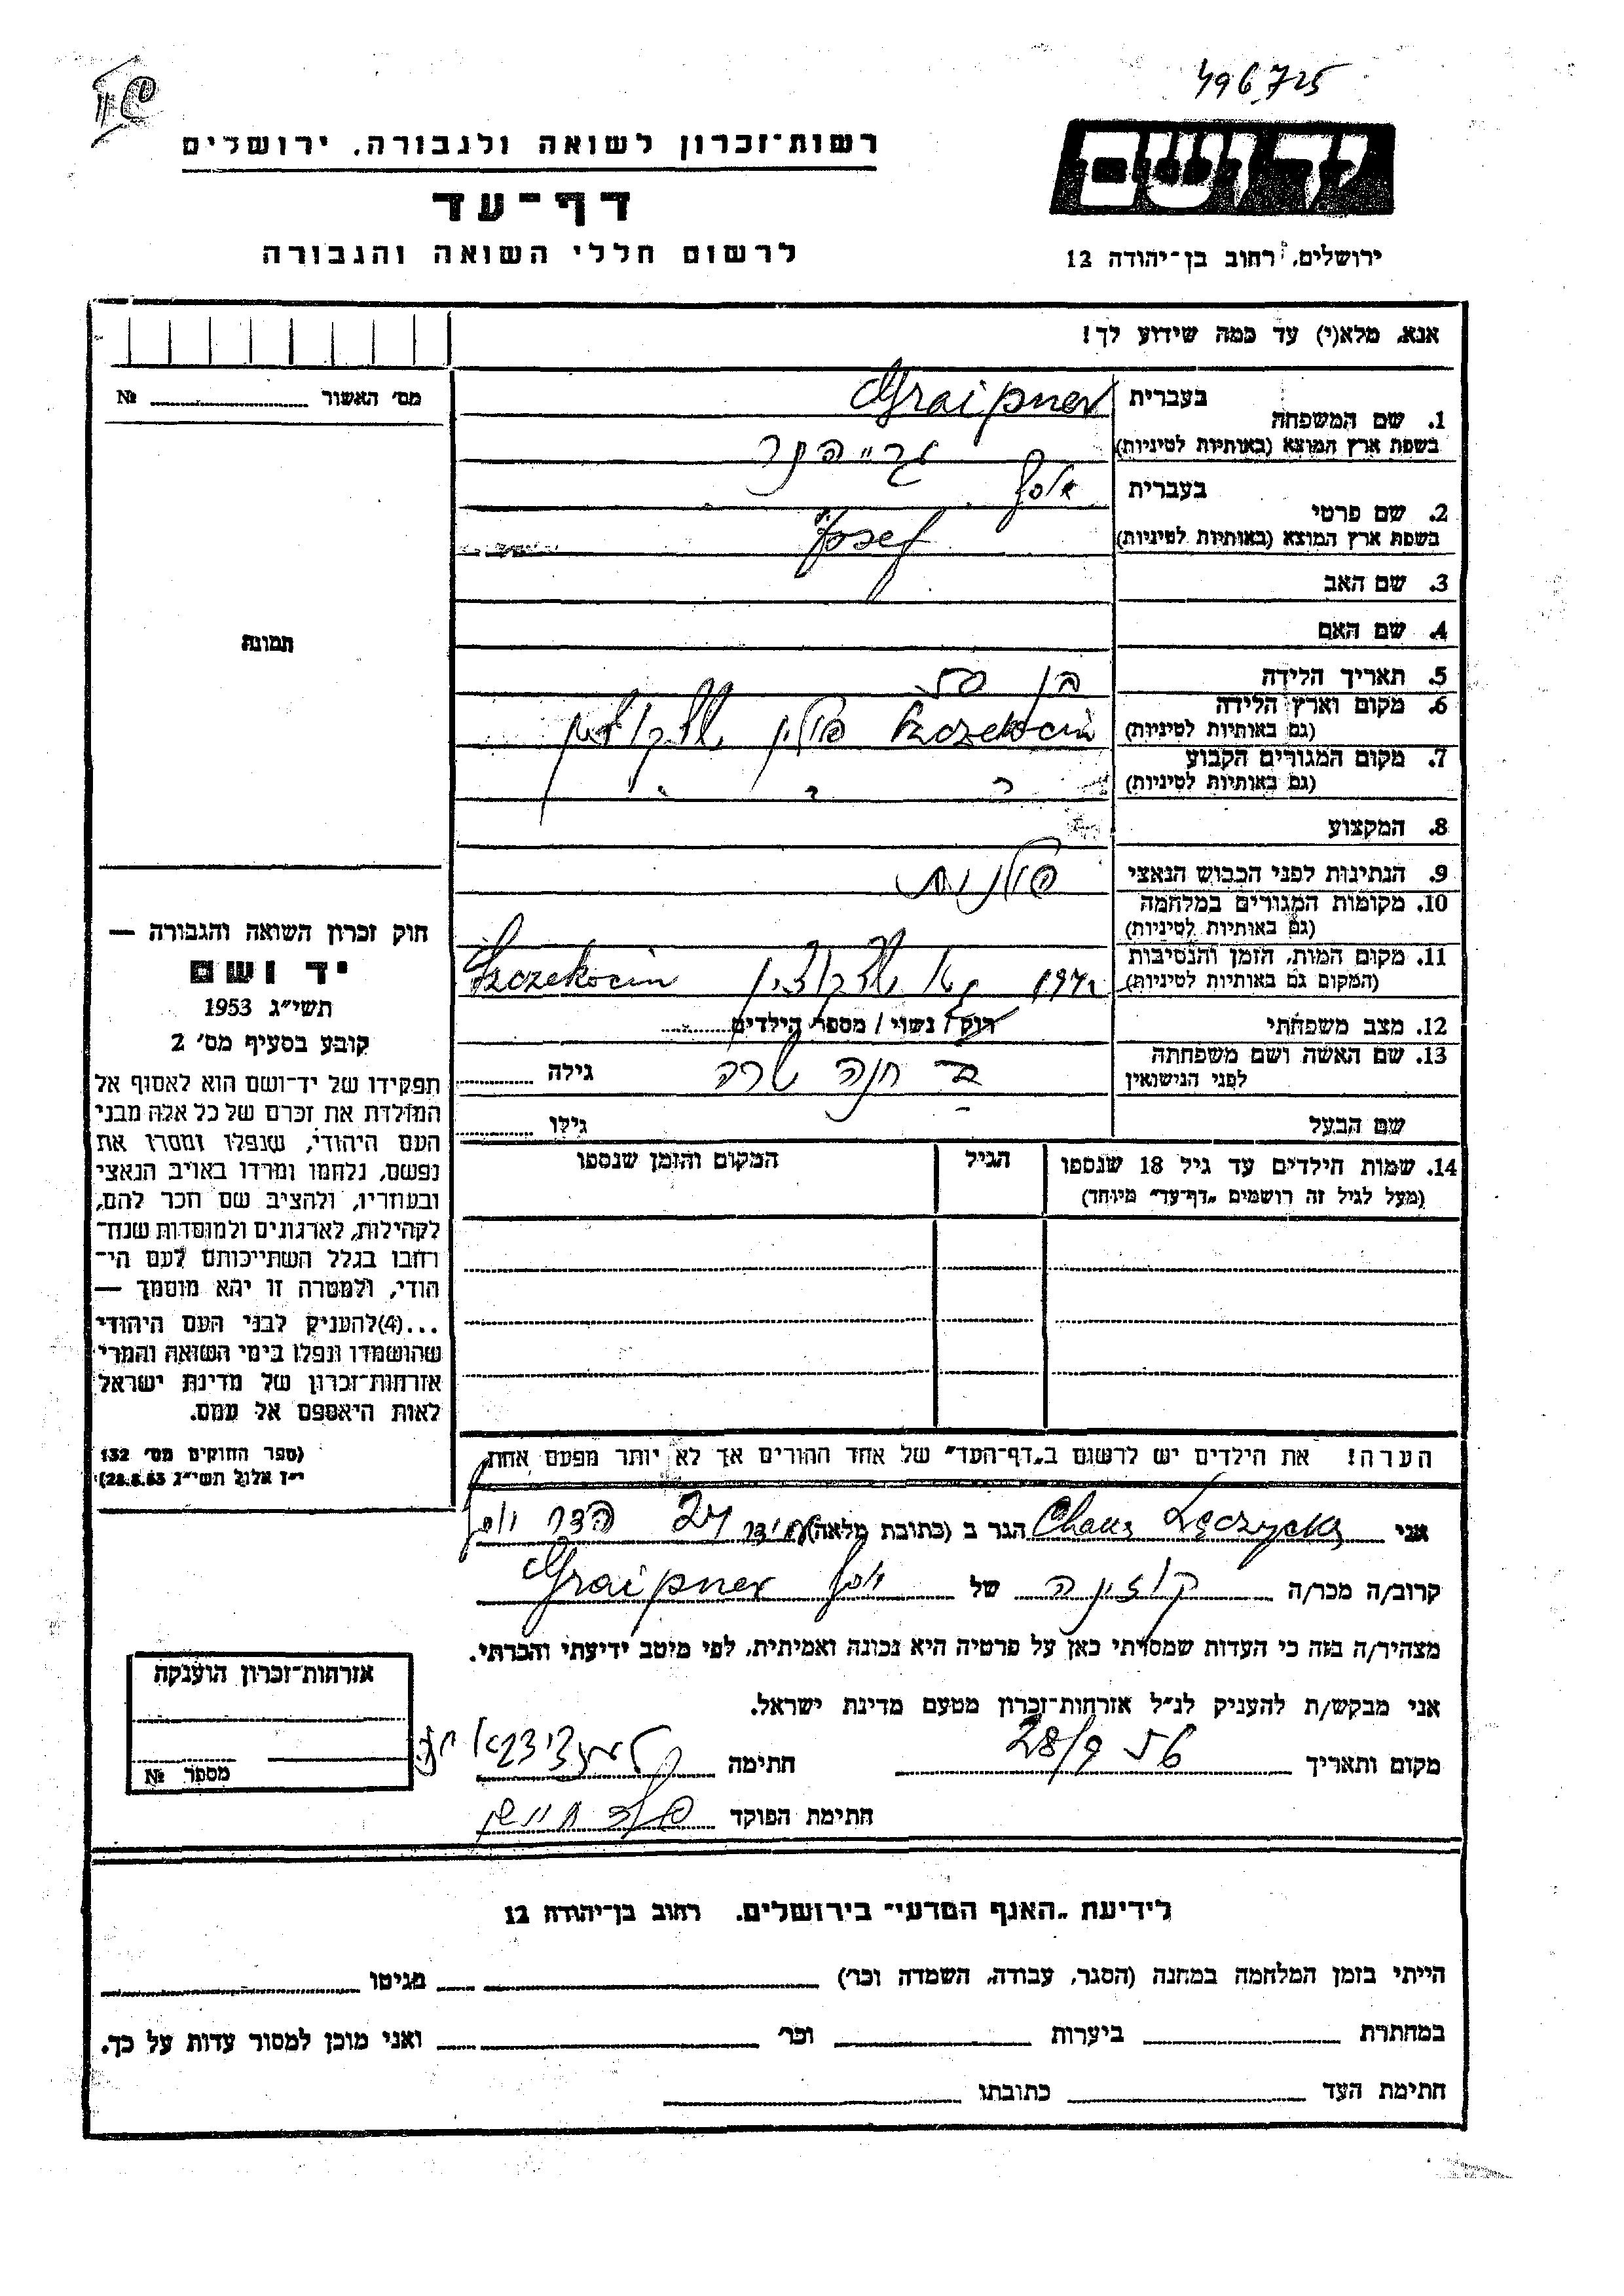 496725
רשות־זכרון לשואה ולגבורה, ירושלים
דף־עד
לרשום חללי השואה והגבורה
ידושם
ירושלים, רחוב בן־יהודה 12
אנא, מלא(י) עד כמה שידוע לך!
מס' האשור № 
1. שם המשפחה
בעברית Graipner
בשפת ארץ המוצא (באותיות לטיניות)
2. שם פרטי
בעברית יוסף
בשפת ארץ המוצא (באותיות לטיניות) Josef
3. שם האב
4. שם האם
5. תאריך הלידה בן
6. מקום וארץ הלידה
(גם באותיות לטיניות) Szczekocin פולין
7. מקום המגורים הקבוע
(גם באותיות לטיניות)
8. המקצוע
9. הנתינות לפני הכבוש הנאצי פולנית
10. מקומות המגורים במלחמה
(גם באותיות לטיניות)
11. מקום המות, הזמן והנסיבות
(המקום גם באותיות לטיניות) Szczekocin
12. מצב משפחתי רוק / נשוי / מספר הילדים
13. שם האשה ושם משפחתה
לפני הנישואין חנה שרה גילה
שם הבעל גילו
14. שמות הילדים עד גיל 18 שנספו
(מעל לגיל זה רושמים "דף־עד" מיוחד)
הגיל
המקום והזמן שנספו
הערה! את הילדים יש לרשום ב"דף־העד" של אחד ההורים אך לא יותר מפעם אחת
תמונה
חוק זכרון השואה והגבורה —
יד ושם
תשי"ג 1953
קובע בסעיף מס' 2
תפקידו של יד־ושם הוא לאסוף אל
המולדת את זכרם של כל אלה מבני
העם היהודי, שנפלו ומסרו את
נפשם, נלחמו ומרדו באויב הנאצי
ובעוזריו, ולהציב שם וזכר להם,
לקהילות, לארגונים ולמוסדות שנח־
רבו בגלל השתייכותם לעם הי־
הודי, ולמטרה זו יהא מוסמך —
...(4)להעניק לבני העם היהודי
שהושמדו ונפלו בימי השואה והמרי
אזרחות־זכרון של מדינת ישראל
לאות היאספם אל עמם.
(ספר החוקים מס' 132
י"ז אלול תשי"ג 28.8.53)
אני Chana Łęczycka הגר ב (כתובת מלאה)
קרוב/ה מכר/ה קוזינה של יוסף Graipner
מצהיר/ה בזה כי העדות שמסרתי כאן על פרטיה היא נכונה ואמיתית, לפי מיטב ידיעתי והכרתי.
אני מבקש/ת להעניק לנ"ל אזרחות־זכרון מטעם מדינת ישראל.
מקום ותאריך 28/9 56 חתימה
חתימת הפוקד
אזרחות־זכרון הוענקה
מספר №
לידיעת "האגף המדעי" בירושלים, רחוב בן־יהודה 12
הייתי בזמן המלחמה במחנה (הסגר, עבודה, השמדה וכר') מגיטו
במחתרת ביערות וכר' ואני מוכן למסור עדות על כך.
חתימת העד כתובתו